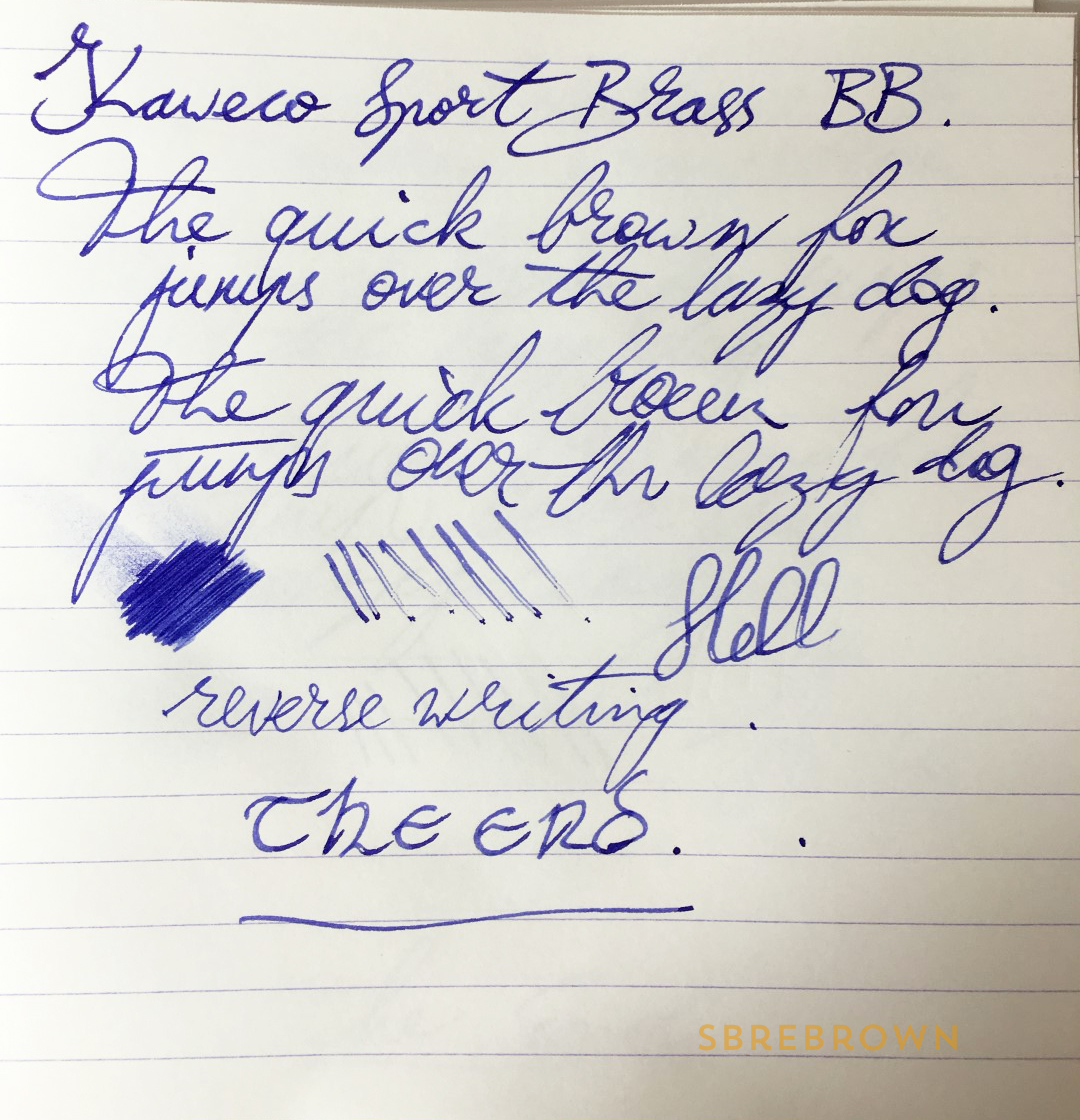 Kaweco Sport Brass BB.
The quick brown fox
jumps over the lazy dog.
The quick brown fox
jumps over the lazy dog.
reverse writing .
THE END. .
SBREBROWN